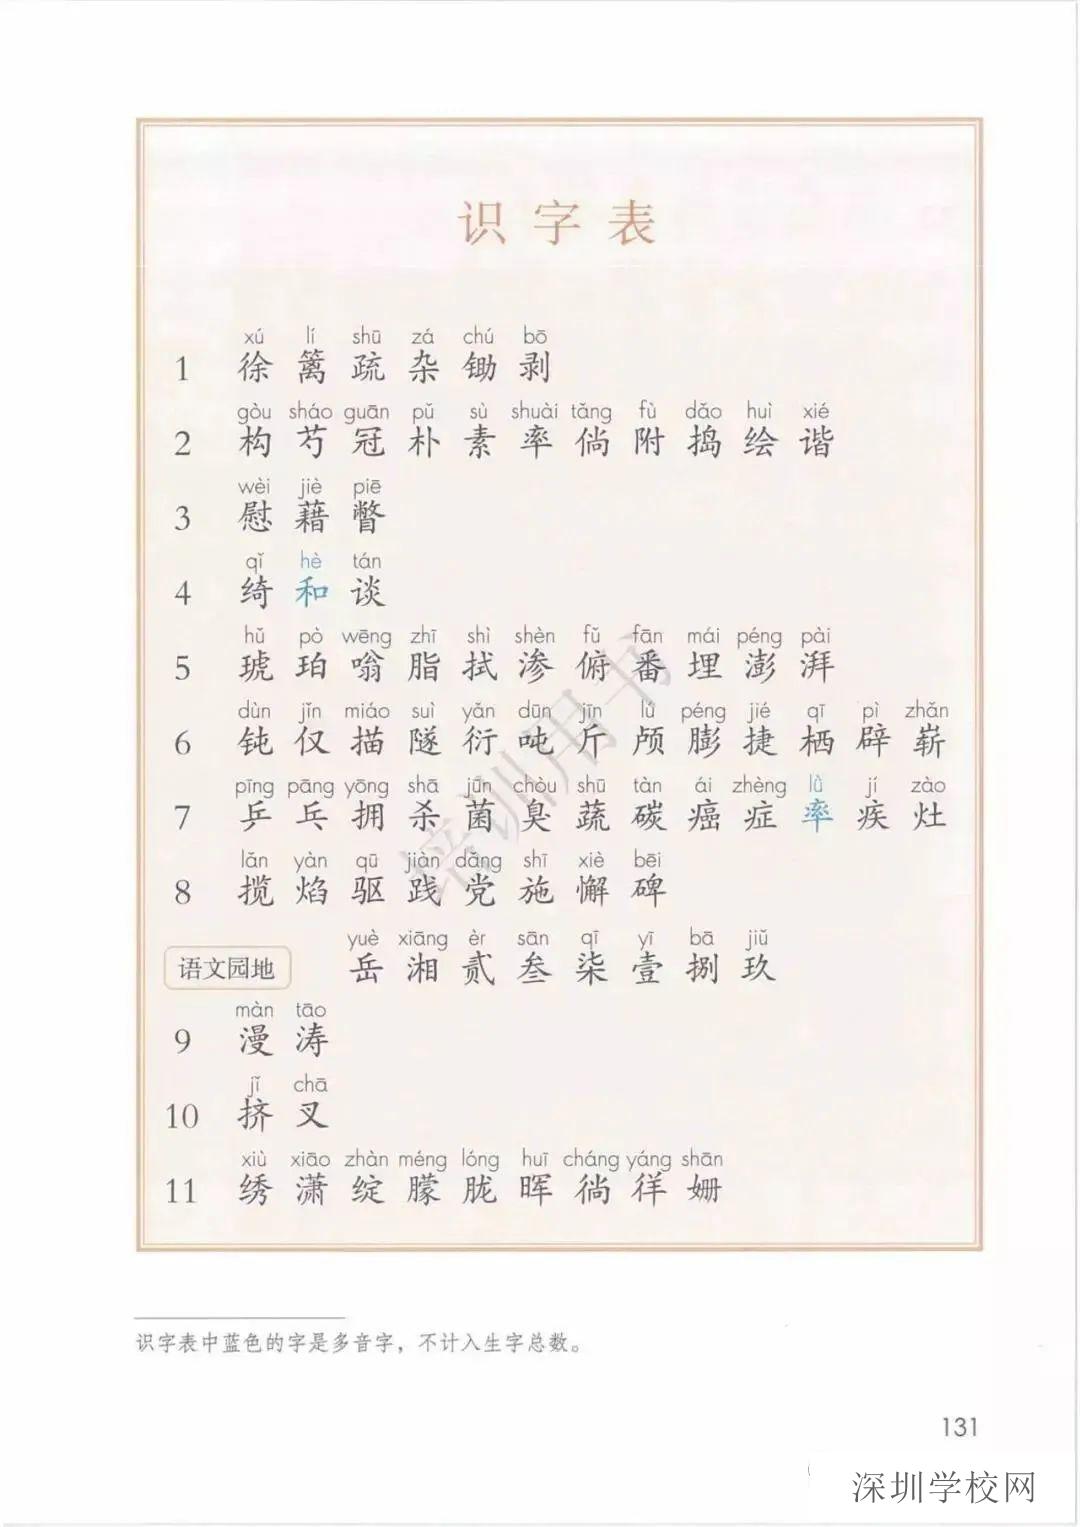 识字表
xú lí shū zá chú bō
1 徐 篱 疏 杂 锄 剥
gòu sháo guān pǔ sù shuài tǎng fù dǎo huì xié
2 构 芍 冠 朴 素 率 倘 附 捣 绘 谐
wèi jiè piē
3 慰 藉 瞥
qǐ hè tán
4 绮 和 谈
hǔ pò wēng zhī shì shèn fǔ fān mái péng pài
5 琥 珀 嗡 脂 拭 渗 俯 番 埋 澎 湃
dùn jǐn miáo suì yǎn dūn jīn lú péng jié qī pì zhǎn
6 钝 仅 描 隧 衍 吨 斤 颅 膨 捷 栖 辟 崭
pīng pāng yōng shā jūn chòu shū tàn ái zhèng lǜ jí zào
7 乒 乓 拥 杀 菌 臭 蔬 碳 癌 症 率 疾 灶
lǎn yàn qū jiàn dǎng shī xiè bēi
8 揽 焰 驱 践 党 施 懈 碑
yuè xiāng èr sān qī yī bā jiǔ
语文园地 岳 湘 贰 叁 柒 壹 捌 玖
màn tāo
9 漫 涛
jǐ chā
10 挤 叉
xiù xiāo zhàn méng lóng huī cháng yáng shān
11 绣 潇 绽 朦 胧 晖 徜 徉 姗
培训用书
识字表中蓝色的字是多音字，不计入生字总数。
131
深圳学校网